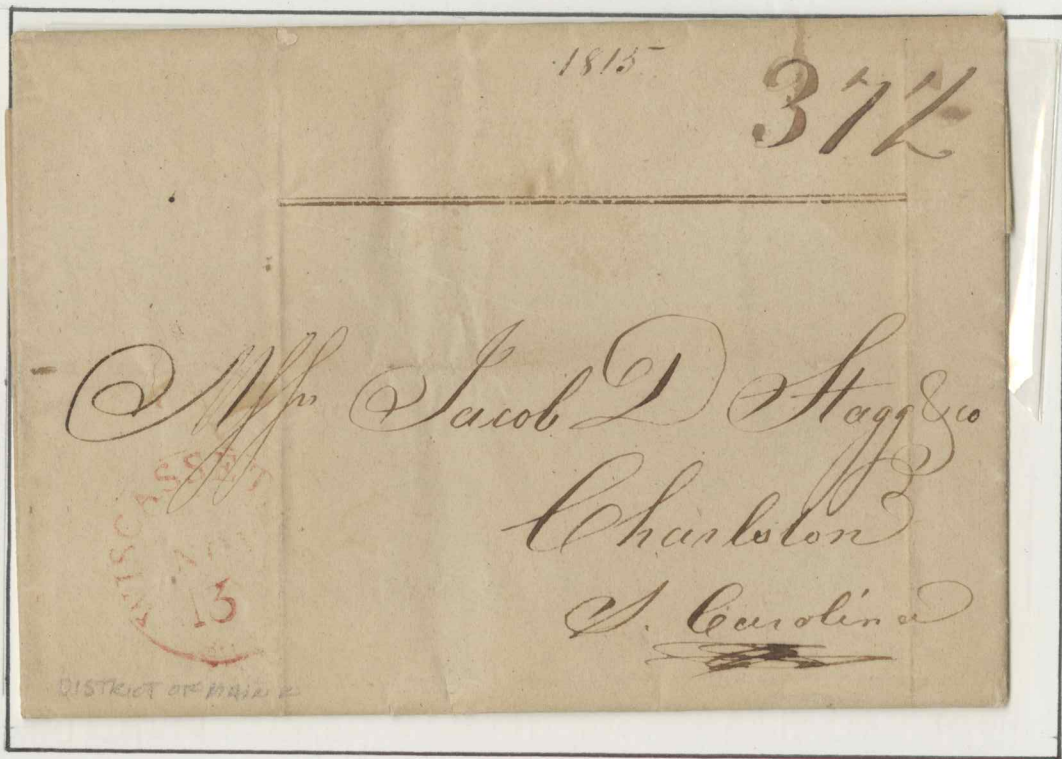 1815
372
Messrs Jacob D Stagg & co
Charleston
S. Carolina
WISCASSET
NOV
13
DISTRICT OF MAINE